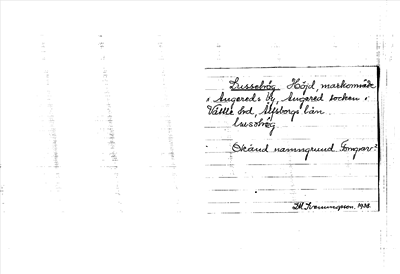 Lussebög Höjd, markområde
i Angereds by, Angered socken i
Vättle hd, Älvsborgs län.
lussebög.
Okänd namngrund
Svenungsson. 1938.